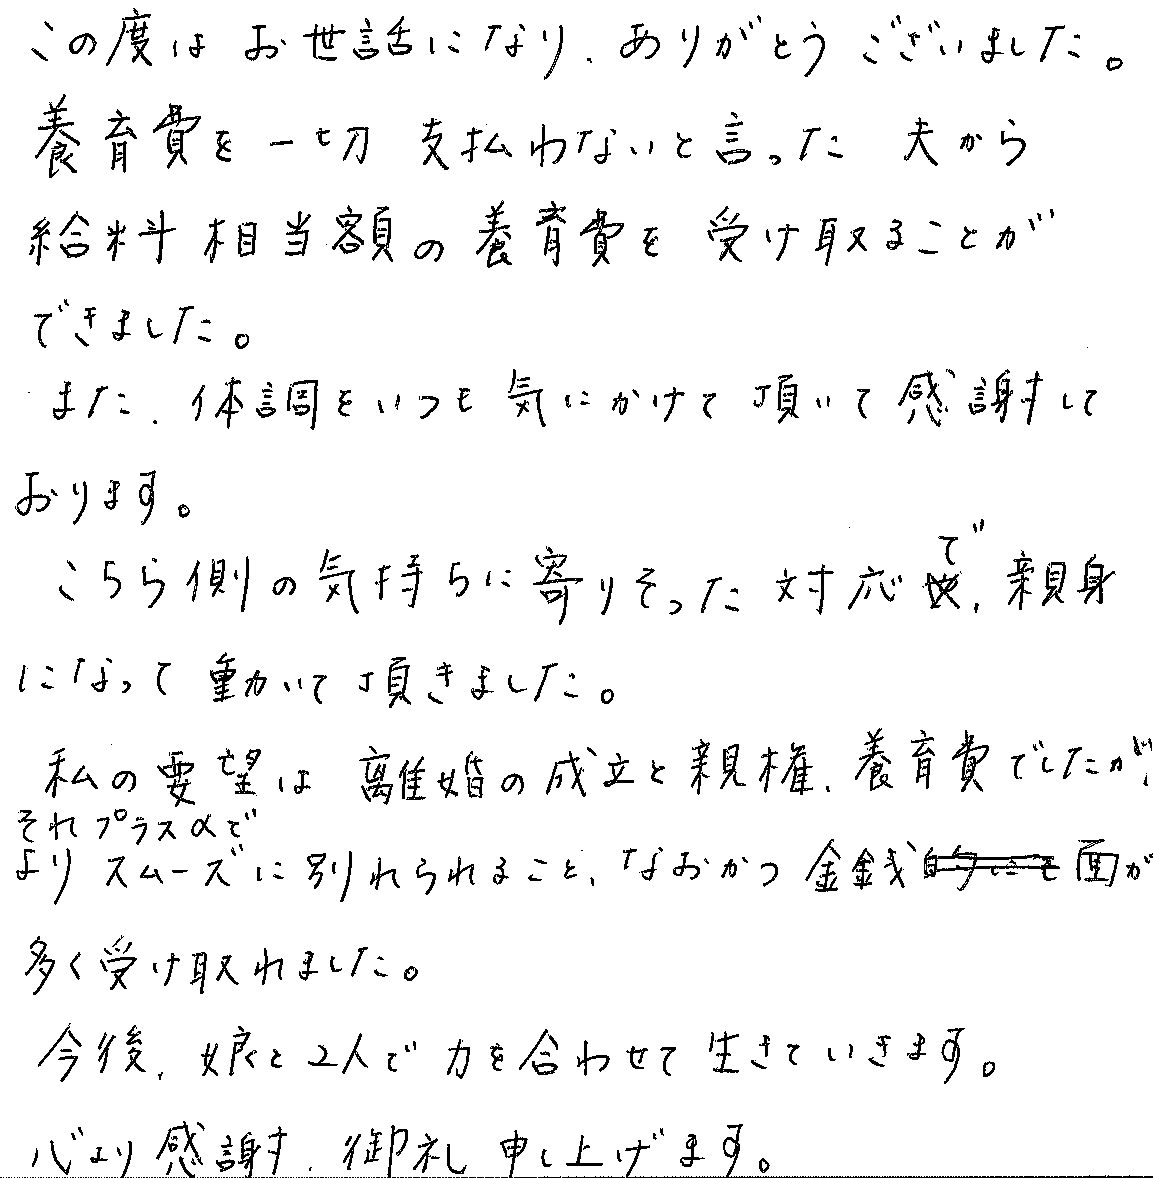 この度は お世話になり、ありがとう ございました。
養育費を 一切 支払わないと言った 夫から
給料相当額の養育費を 受け取ることが
できました。
また、体調をいつも気にかけて頂いて感謝して
おります。
で
こちら側の気持ちに寄りそった対応、親身
になって動いて頂きました。
私の要望は 離婚の成立と親権、養育費でしたが、
それプラスαで
よりスムーズに別れられること、なおかつ金銭面が
多く受け取れました。
今後、娘と2人で力を合わせて生きていきます。
心より感謝、御礼申し上げます。